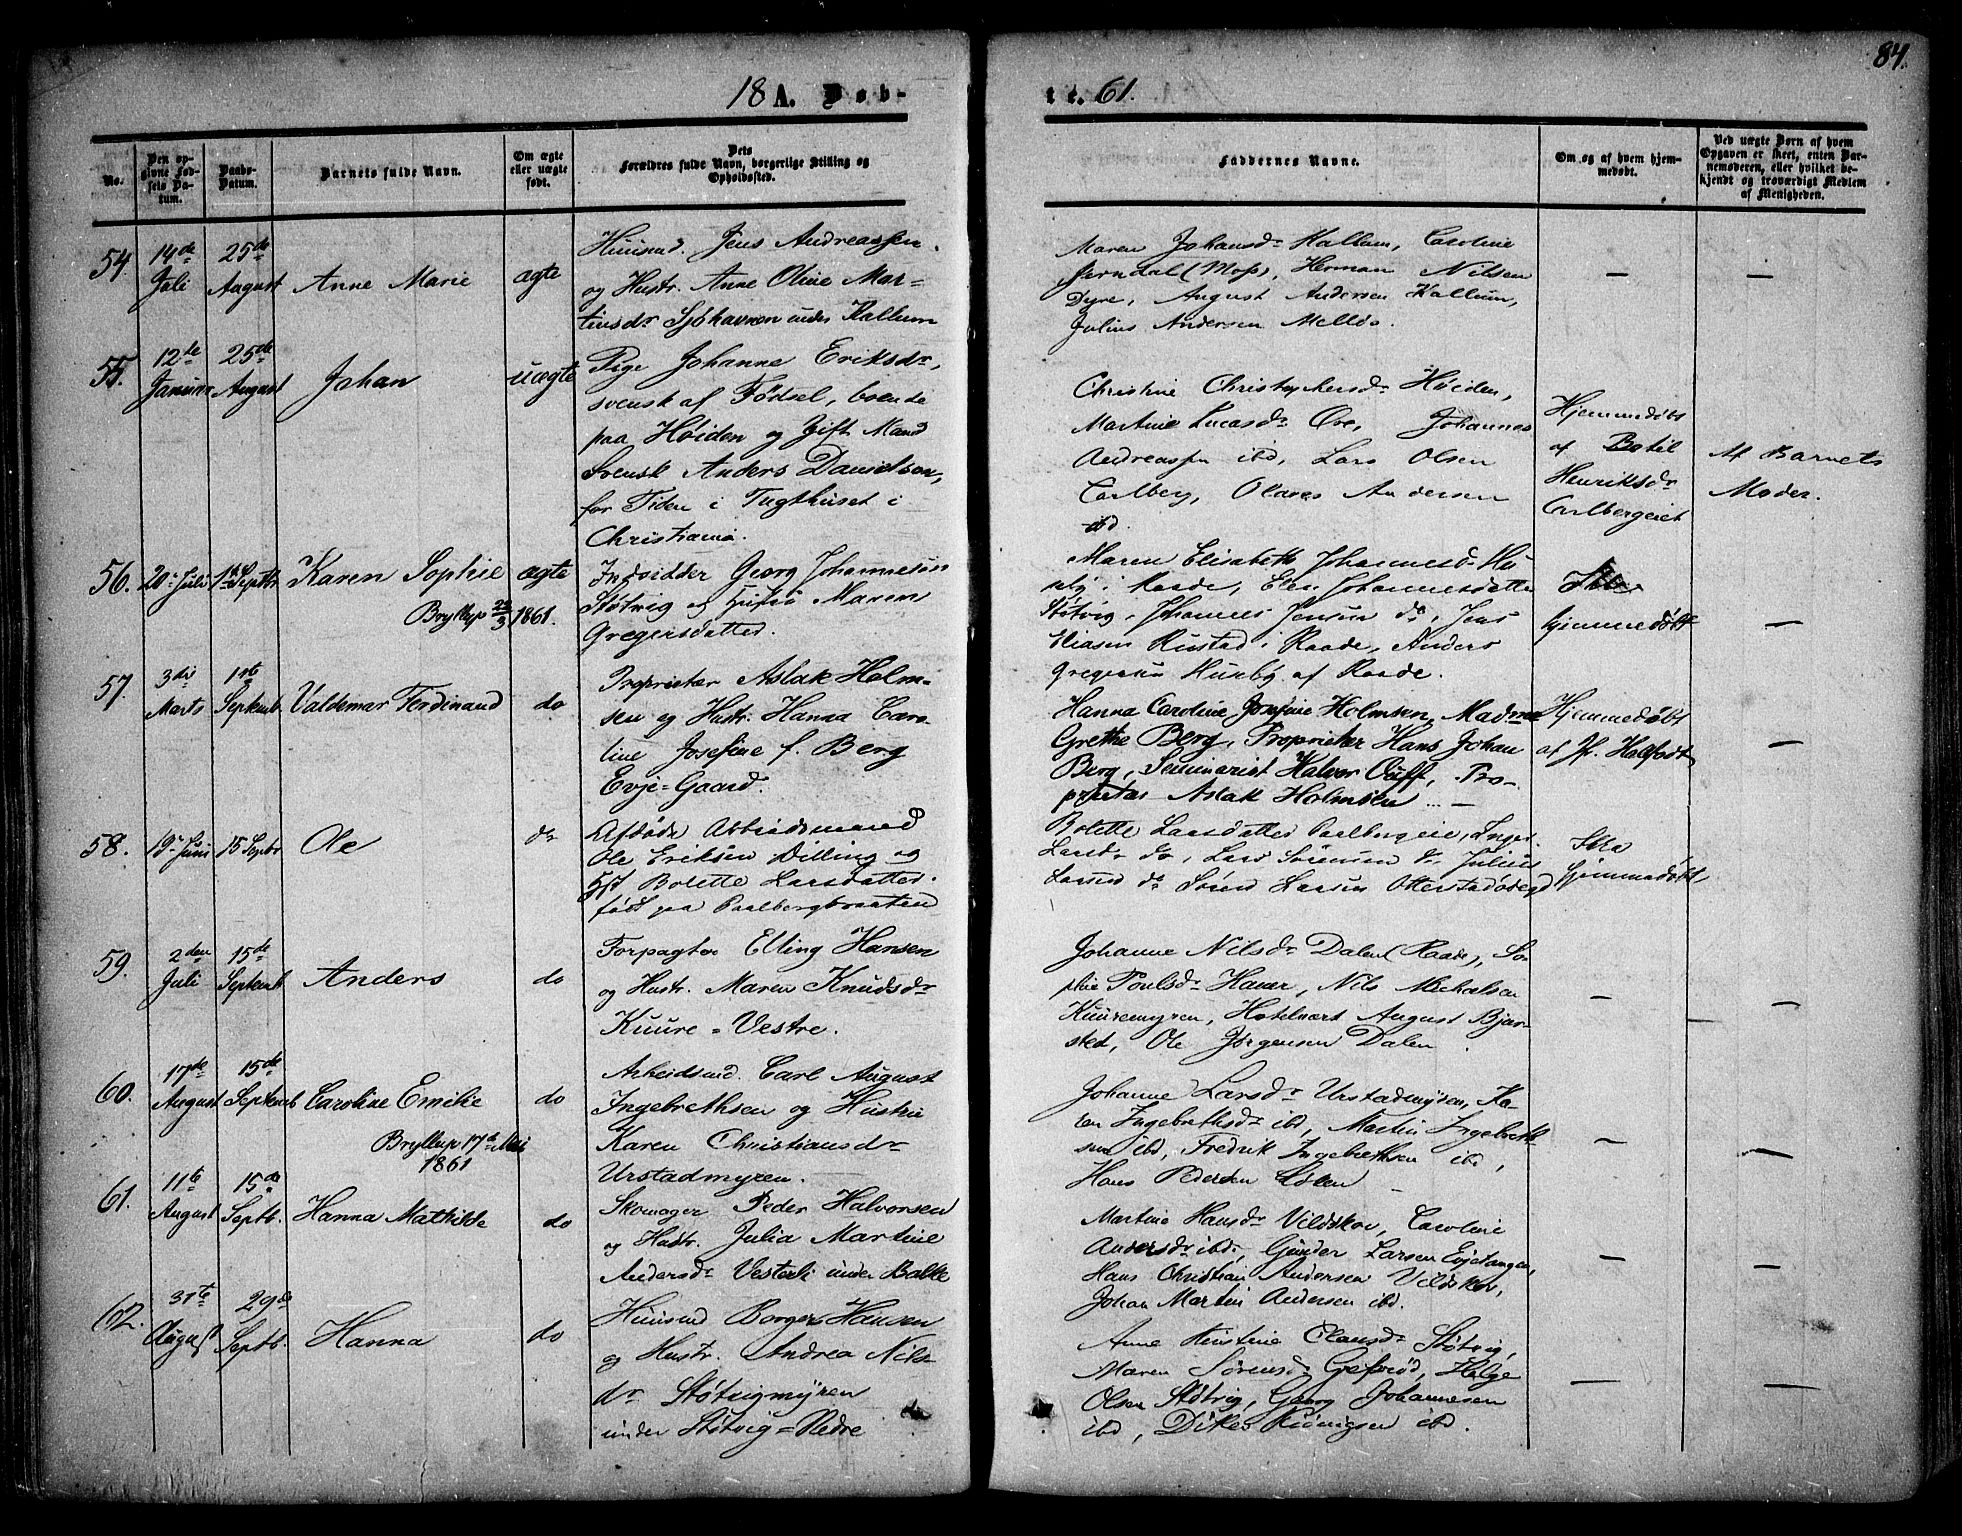 84.
18 A. Døb-
te. 61.
No.
Den op-
givne Fød-
sels Da-
tum.
Daabs-
Datum.
Barnets fulde Navn.
Om ægte
eller uægte
født.
Dets
Forældres fulde Navn, borgerlige Stilling og
Opholdssted.
Faddernes Navne.
Om og af hvem hjem-
medøbt.
Ved uægte Børn af hvem
Opgaven er skeet, enten Bar-
nemoderen, eller hvilket be-
kjendt og troværdigt Medlem
af Menigheden.
54.
14de
Juli
25de
August
Anne Marie
ægte
Huusmd. Jens Andreassen
og Hustr. Anne Oline Mar-
tinsdr Sjöhavnen under Kallum
Maren Johansdr Kallum, Caroline
Jerndal (Moss), Herman Nilsen
Dyre, August Andersen Kallum,
Julius Andersen Melløs.
—
—
55.
12te
Januar
25de
August
Johan
uægte
Pige Johanne Eriksdr,
svensk af Födsel, boende
paa Höiden og Gift Mand
Svensk Anders Danielsen,
for Tiden i Tugthuset i
Christiania.
Christine Christophersdr Höiden,
Martine Lucasdr Öre, Johannes
Andreassen ibd, Lars Olsen
Carlberg, Olaves Andersen
ibd.
Hjemmedøbt
af Botil
Henriksdr
Carlbergeiet
Af Barnets
Moder.
56.
20. Juli
1ste Septbr
Karen Sophie
ægte
Bryllup 22/3 1861.
Indsidder Georg Johannesen
Støtvig og Hustru Maren
Gregersdatter.
Maren Elisabeth Johannesd. Hu-
seby i Raade, Elen Johannesdatter
Støtvig, Johannes Jensen do, Jens
Eliasen Rustad i Raade, Anders
Gregersen Huseby af Raade.
Ikke
hjemmedøbt
—
57.
3die
Marts
1ste
Septemb.
Valdemar Ferdinand
do
Proprietær Aslak Holm-
sen og Hustr. Hanna Caro-
line Josefine f. Berg
Evje-Gaard.
Hanna Caroline Josefine Holmsen, Madme
Grethe Berg, Proprietær Hans Johan
Berg, Seminarist Halvor Ouff, Pro-
prietær Aslak Holmsen
Hjemmedøbt
af Jf. Holfodt
—
58.
19. Juni
15 Septbr
Ole
do
Afdöde Arbeidsmand
Ole Eriksen Dilling og
Gift Bolette Larsdatter.
født paa Carlbergbraaten
Bolette Larsdatter Carlbergeie, Inger
Larsd. do, Lars Sørensen do, Julius
Larsen do Søren Larsen Otterstadødegd
Ikke
hjemmedøbt
59.
2den
Juli
15de
Septemb.
Anders
do
Forpagter Elling Hansen
og Hustr. Maren Knudsdr
Kuure = Vestre.
Johanne Nilsdr Dalen (Raade), So-
phie Poulsdr Haner, Nils Michelsen
Kuuremyren, Hotelvært August Bjer-
sted, Ole Jörgensen Dalen.
—
—
60.
17de
August
15de
Septemb
Caroline Emilie
do
Bryllup 17de Mai
1861
Arbeidsmd. Carl August
Ingebrethsen og Hustru
Karen Christiansdr
Urstadmyren.
Johanne Larsdr Urstadmyren, Ka-
ren Ingebrethsdr ibd, Martin Ingebreth-
sen ibd, Fredrik Ingebrethsen ibd,
Hans Pedersen
—
—
61.
11te
August
15de
Septb.
Hanna Mathilde
do
Skomager Peder Halvorsen
og Hustr. Julia Martine
Andersdr Vesterli under Balke
Martine Hansdr Vildskov, Caroline
Andersdr ibd, Gunder Larsen Evjetangen,
Hans Christian Andersen Vildskov,
Johan Martin Andersen ibd.
—
—
62.
31te
August
29de
Septb.
Hanna
do
Huusmd Borger Hansen
og Hustr. Andrea Nils-
dr Støtvigmyren
under Støtvig = Nedre
Anne Kirstine Clausdr Støtvig,
Maren Sörensdr Gefsröd, Helge
Olsen Støtvig, Georg Johannesen
ibd, ibd
—
—